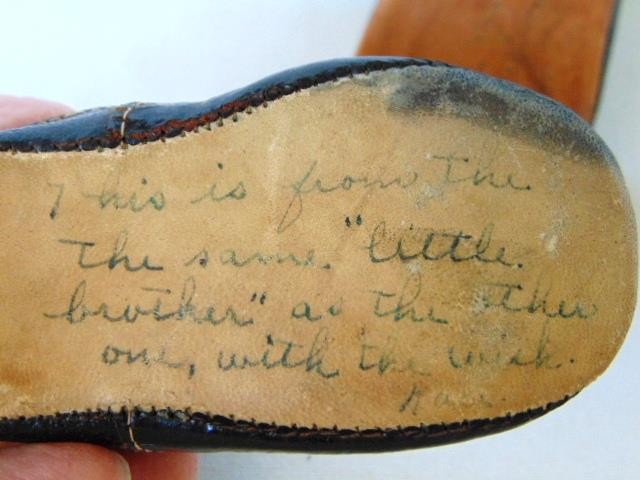 This is from the
the same "little
brother" as the other
one, with the wish.